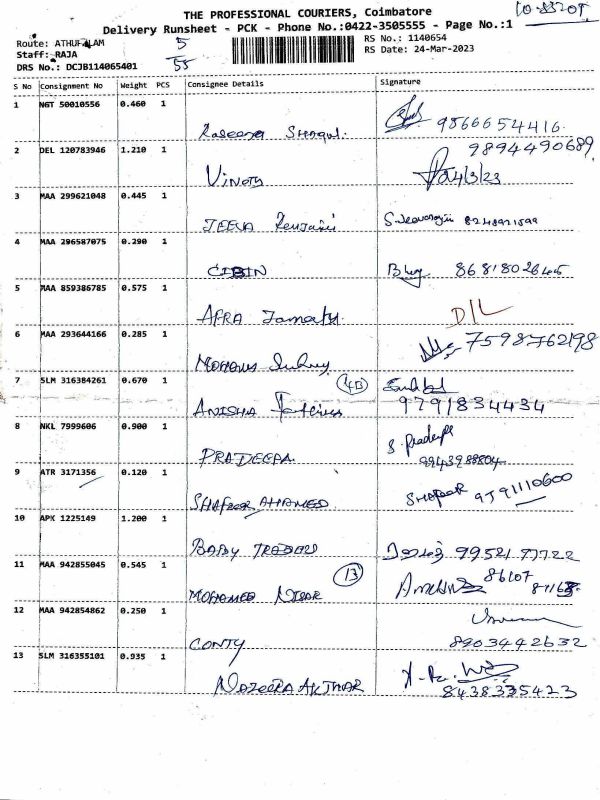 THE PROFESSIONAL COURIERS, Coimbatore
Delivery Runsheet - PCK - Phone No.:0422-3505555 - Page No.:1
Route: ATHUPALAM 5 RS No.: 1140654
Staff: RAJA 55 RS Date: 24-Mar-2023
DRS No.: DCJB114065401
S No Consignment No Weight PCS Consignee Details Signature
1 NGT 50010556 0.460 1
Raseena 9866654416
2 DEL 120783946 1.210 1 9894490689
Vinoth 24/3/23
3 MAA 299621048 0.445 1
JEEVA
4 MAA 296587075 0.290 1
CIBIN 8681802645
5 MAA 859386785 0.575 1
AFRA D/L
6 MAA 293644166 0.285 1 7598762198
7 SLM 316384261 0.670 1 4B
ANISHA 9791834434
8 NKL 7999606 0.900 1 S. Pradeepa
PRADEEPA 9943988804
9 ATR 3171356 0.120 1
SHAFEER AHAMED 9791110600
10 APK 1225149 1.200 1
BABY TRADERS 99521 77722
11 MAA 942855045 0.545 1 13 86107
MOHAMED NISAR
12 MAA 942854862 0.250 1
CONTY 8903442632
13 SLM 316355101 0.935 1
NAZEERA AKTHAR 8438335423